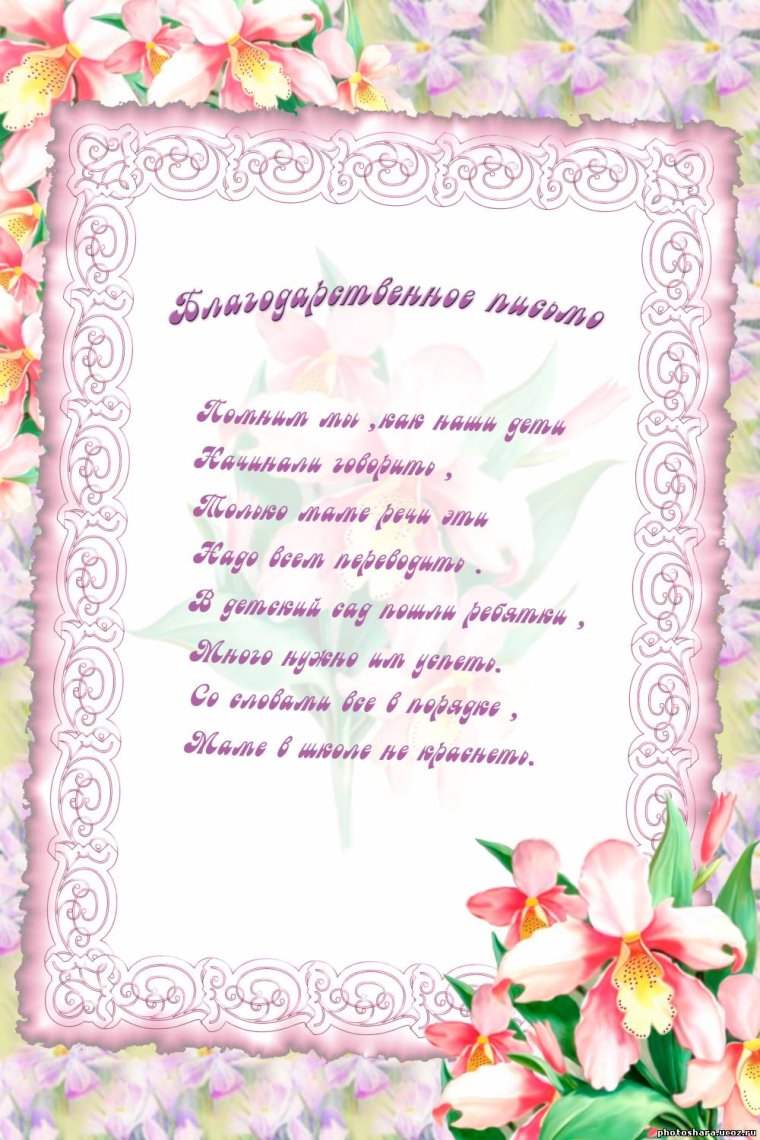 Благодарственное письмо
Помним мы ,как наши дети
Начинали говорить ,
Только маме речи эти
Надо всем переводить .
В детский сад пошли ребятки ,
Много нужно им успеть.
Со словами все в порядке ,
Маме в школе не краснеть.
photoshara.ucoz.ru